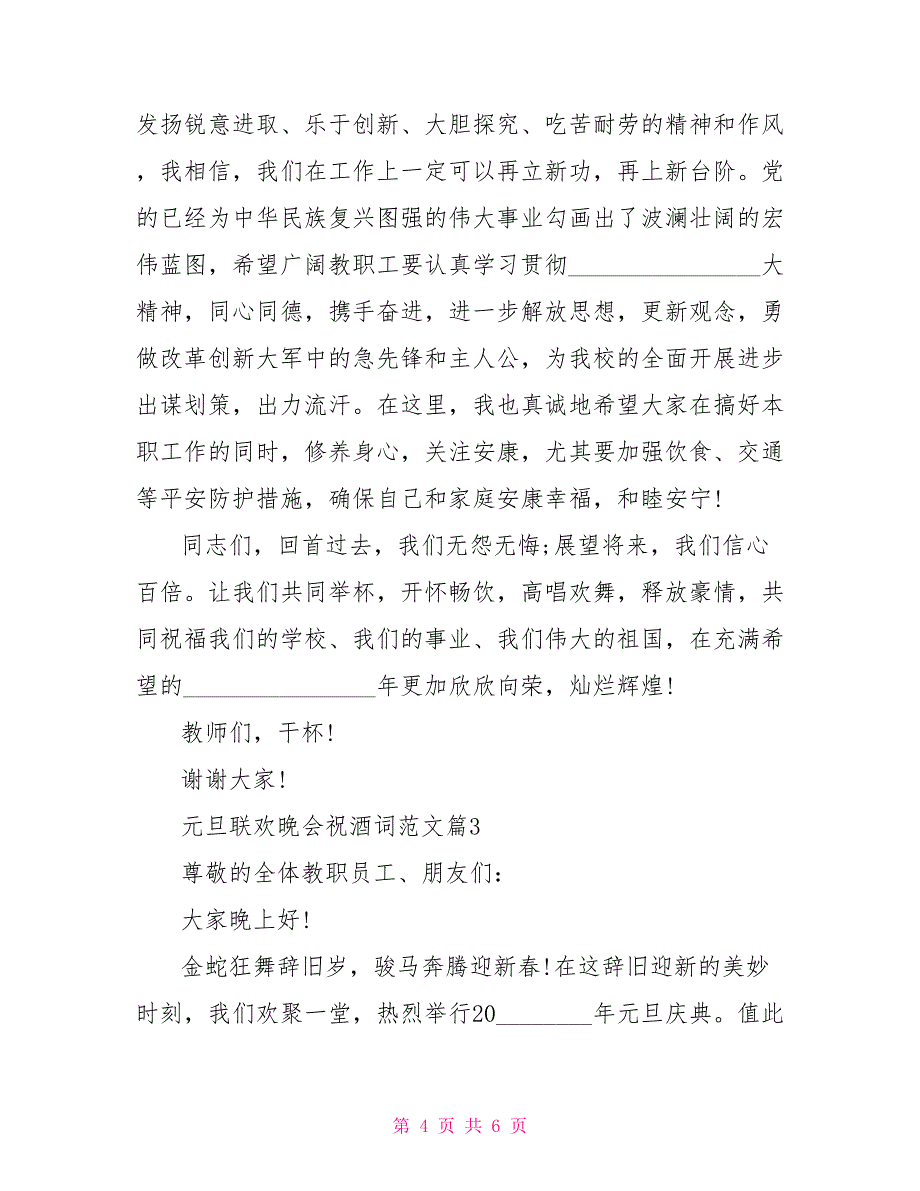 发扬锐意进取、乐于创新、大胆探究、吃苦耐劳的精神和作风
，我相信，我们在工作上一定可以再立新功，再上新台阶。党
的已经为中华民族复兴图强的伟大事业勾画出了波澜壮阔的宏
伟蓝图，希望广阔教职工要认真学习贯彻________________大
精神，同心同德，携手奋进，进一步解放思想，更新观念，勇
做改革创新大军中的急先锋和主人公，为我校的全面开展进步
出谋划策，出力流汗。在这里，我也真诚地希望大家在搞好本
职工作的同时，修养身心，关注安康，尤其要加强饮食、交通
等平安防护措施，确保自己和家庭安康幸福，和睦安宁!
同志们，回首过去，我们无怨无悔;展望将来，我们信心
百倍。让我们共同举杯，开怀畅饮，高唱欢舞，释放豪情，共
同祝福我们的学校、我们的事业、我们伟大的祖国，在充满希
望的________________年更加欣欣向荣，灿烂辉煌!
教师们，干杯!
谢谢大家!
元旦联欢晚会祝酒词范文篇3
尊敬的全体教职员工、朋友们：
大家晚上好!
金蛇狂舞辞旧岁，骏马奔腾迎新春!在这辞旧迎新的美妙
时刻，我们欢聚一堂，热烈举行20________年元旦庆典。值此
第 4 页 共 6 页